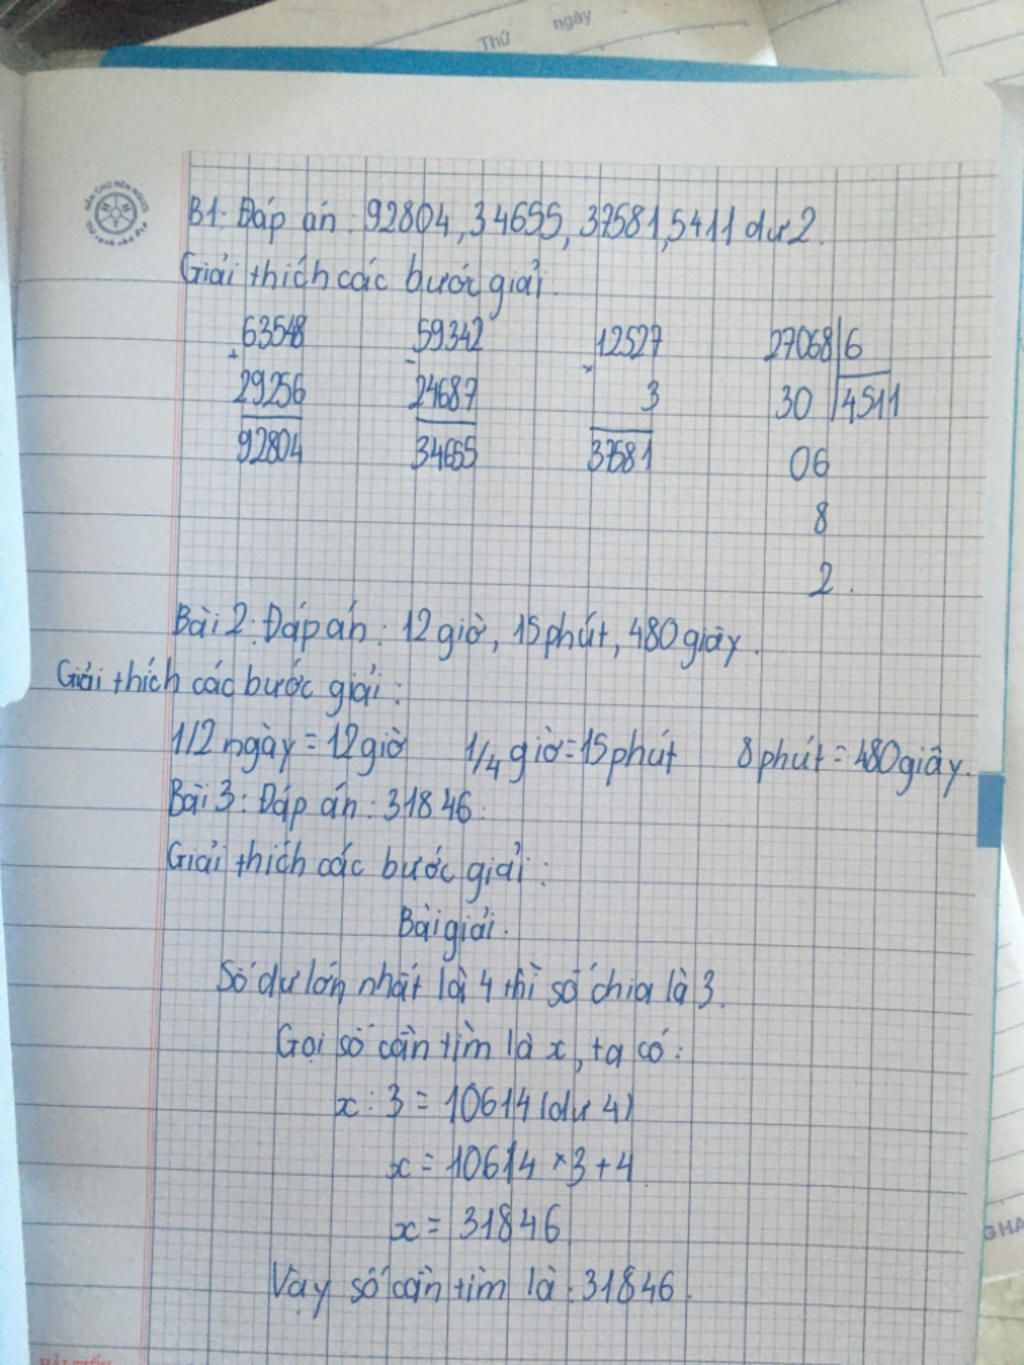 Thứ ngày
B1: Đáp án: 92804, 34655, 37581, 5411 dư 2.
Giải thích các bước giải.
63548 59342 12527 27068 6
+ - ×
29256 24687 3 30 4511
92804 34655 37581 06
8
2.
Bài 2: Đáp án: 12 giờ, 15 phút, 480 giây.
Giải thích các bước giải:
1/2 ngày = 12 giờ 1/4 giờ = 15 phút 8 phút = 480 giây.
Bài 3: Đáp án: 31846.
Giải thích các bước giải:
Bài giải.
Số dư lớn nhất là 4 thì số chia là 3.
Gọi số cần tìm là x, ta có:
x : 3 = 10614 (dư 4)
x = 10614 × 3 + 4
x = 31846
Vậy số cần tìm là: 31846.